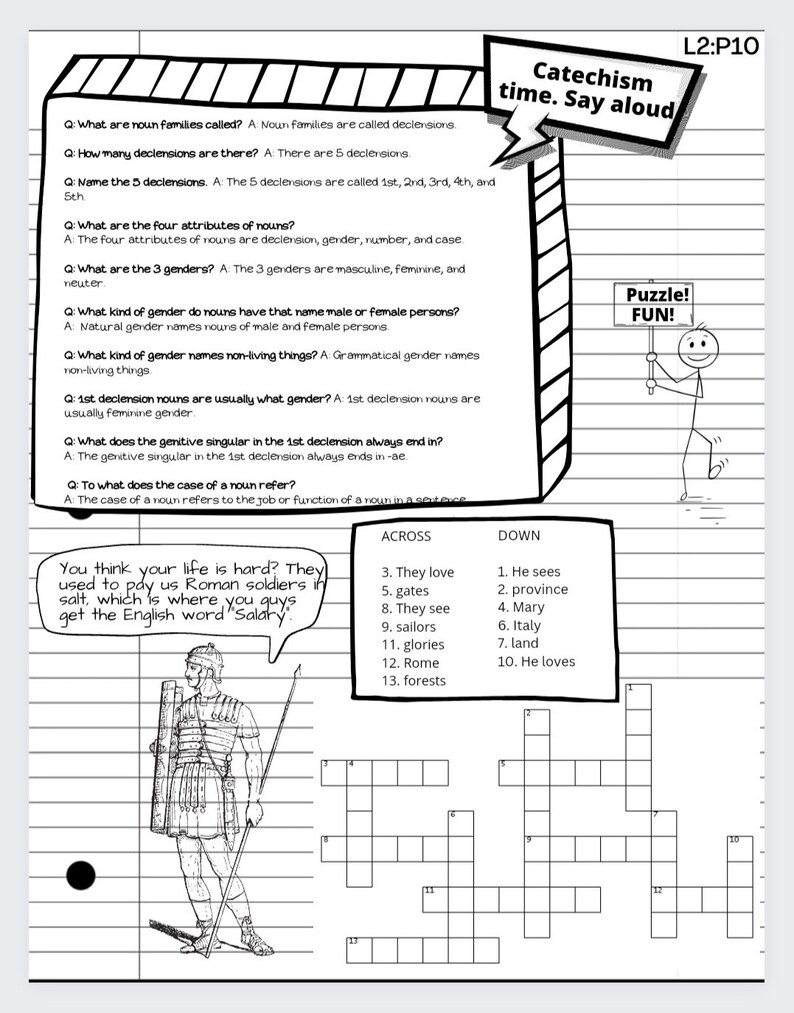 L2:P10
Catechism
time. Say aloud
Q: What are noun families called? A: Noun families are called declensions.
Q: How many declensions are there? A: There are 5 declensions.
Q: Name the 5 declensions. A: The 5 declensions are called 1st, 2nd, 3rd, 4th, and
5th.
Q: What are the four attributes of nouns?
A: The four attributes of nouns are declension, gender, number, and case.
Q: What are the 3 genders? A: The 3 genders are masculine, feminine, and
neuter.
Q: What kind of gender do nouns have that name male or female persons?
A: Natural gender names nouns of male and female persons.
Q: What kind of gender names non-living things? A: Grammatical gender names
non-living things.
Q: 1st declension nouns are usually what gender? A: 1st declension nouns are
usually feminine gender.
Q: What does the genitive singular in the 1st declension always end in?
A: The genitive singular in the 1st declension always ends in -ae.
Q: To what does the case of a noun refer?
A: The case of a noun refers to the job or function of a noun in a sentence
Puzzle!
FUN!
You think your life is hard? They
used to pay us Roman soldiers in
salt, which is where you guys
get the English word "Salary".
ACROSS
3. They love
5. gates
8. They see
9. sailors
11. glories
12. Rome
13. forests
DOWN
1. He sees
2. province
4. Mary
6. Italy
7. land
10. He loves
1
2
3
4
5
6
7
8
9
10
11
12
13